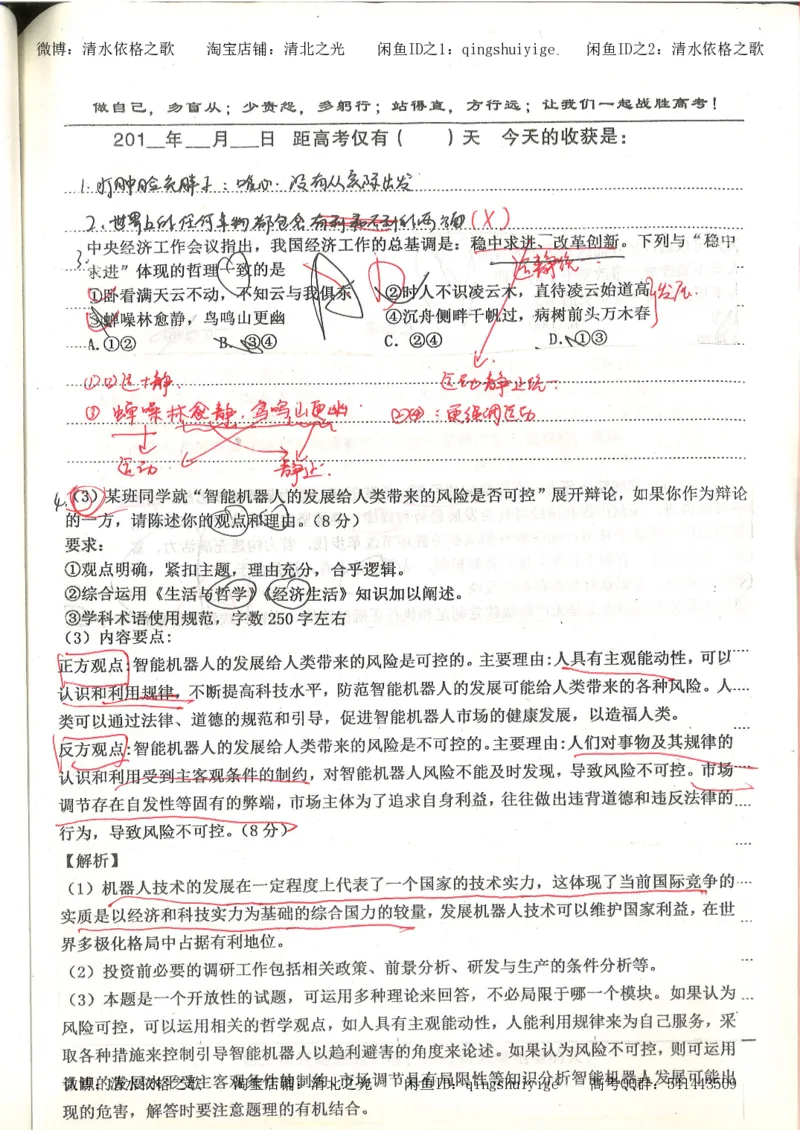 微博：清水依格之歌 淘宝店铺：清北之光 闲鱼ID之1：qingshuiyige. 闲鱼ID之2：清水依格之歌
做自己，勿盲从；少责怨，多躬行；站得直，方行远；让我们一起战胜高考！
201__年___月___日 距高考仅有（ ）天 今天的收获是：
1.打肿脸充胖子：唯心·没有从实际出发
2.世界上的任何事物都包含有利和不利的两方面（X）
3.
中央经济工作会议指出，我国经济工作的总基调是：稳中求进、改革创新。下列与“稳中
求进”体现的哲理一致的是
①卧看满天云不动，不知云与我俱东 ②时人不识凌云木，直待凌云始道高 发展.
③蝉噪林愈静，鸟鸣山更幽 ④沉舟侧畔千帆过，病树前头万木春
A.①② B.③④ C.②④ D.①③
运动静止统一
③ 蝉噪林愈静.鸟鸣山更幽 ②④：更强调运动
运动 静止.
4.（3）某班同学就“智能机器人的发展给人类带来的风险是否可控”展开辩论，如果你作为辩论
的一方，请陈述你的观点和理由。（8分）
要求：
①观点明确，紧扣主题，理由充分，合乎逻辑。
②综合运用《生活与哲学》《经济生活》知识加以阐述。
③学科术语使用规范，字数250字左右
（3）内容要点：
正方观点：智能机器人的发展给人类带来的风险是可控的。主要理由：人具有主观能动性，可以
认识和利用规律，不断提高科技水平，防范智能机器人的发展可能给人类带来的各种风险。人
类可以通过法律、道德的规范和引导，促进智能机器人市场的健康发展，以造福人类。
反方观点：智能机器人的发展给人类带来的风险是不可控的。主要理由：人们对事物及其规律的
认识和利用受到主客观条件的制约，对智能机器人风险不能及时发现，导致风险不可控。市场
调节存在自发性等固有的弊端，市场主体为了追求自身利益，往往做出违背道德和违反法律的
行为，导致风险不可控。（8分）
【解析】
（1）机器人技术的发展在一定程度上代表了一个国家的技术实力，这体现了当前国际竞争的
实质是以经济和科技实力为基础的综合国力的较量，发展机器人技术可以维护国家利益，在世
界多极化格局中占据有利地位。
（2）投资前必要的调研工作包括相关政策、前景分析、研发与生产的条件分析等。
（3）本题是一个开放性的试题，可运用多种理论来回答，不必局限于哪一个模块。如果认为
风险可控，可以运用相关的哲学观点，如人具有主观能动性，人能利用规律来为自己服务，采
取各种措施来控制引导智能机器人以趋利避害的角度来论述。如果认为风险不可控，则可运用
主客观条件的制约、市场调节具有局限性等知识分析智能机器人发展可能出
微博：清水依格之歌 淘宝店铺：清北之光 闲鱼ID：qingshuiyige 高考QQ群：541443509
现的危害，解答时要注意题理的有机结合。